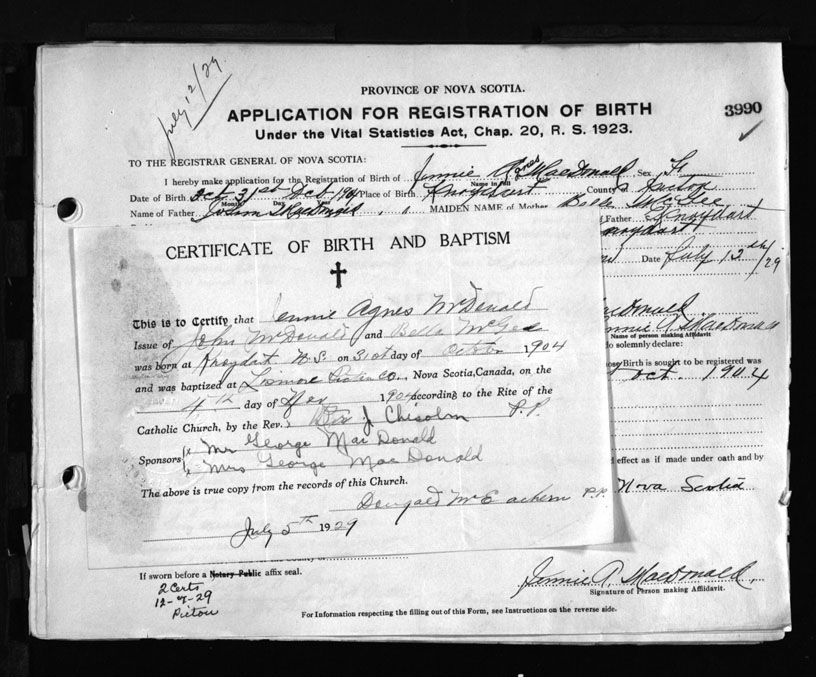 July 12/29
PROVINCE OF NOVA SCOTIA.
APPLICATION FOR REGISTRATION OF BIRTH
3990
Under the Vital Statistics Act, Chap. 20, R. S. 1923.
TO THE REGISTRAR GENERAL OF NOVA SCOTIA:
I hereby make application for the Registration of Birth of Jennie Agnes MacDonald Sex F
Name in full
Date of Birth Oct 31st 1904 Place of Birth County
Month Day
Name of Father MAIDEN NAME of Mother Bella McGee
of Father Knoydart
Knoydart
Date July 12th/29
CERTIFICATE OF BIRTH AND BAPTISM
This is to Certify that Jennie Agnes McDonald
Issue of John McDonald and Bella McGee
was born at Knoydart N.S. on 31st day of October 1904
and was baptized at Lismore Pictou Co., Nova Scotia, Canada, on the
4th day of Nov 1904 according to the Rite of the
Catholic Church, by the Rev. J Chisolm P.P.
Sponsors x Mr George MacDonald
x Mrs George MacDonald
The above is true copy from the records of this Church.
Dougald McEachern P.P.
July 5th 1929
MacDonald
Jennie A MacDonald
Name of person making Affidavit
do solemnly declare:
Birth is sought to be registered was
Oct. 1904
effect as if made under oath and by
Nova Scotia
County of
If sworn before a Notary Public affix seal.
2 Certs
12-7-29
Pictou
Jennie A. MacDonald
Signature of Person making Affidavit.
For Information respecting the filling out of this Form, see Instructions on the reverse side.